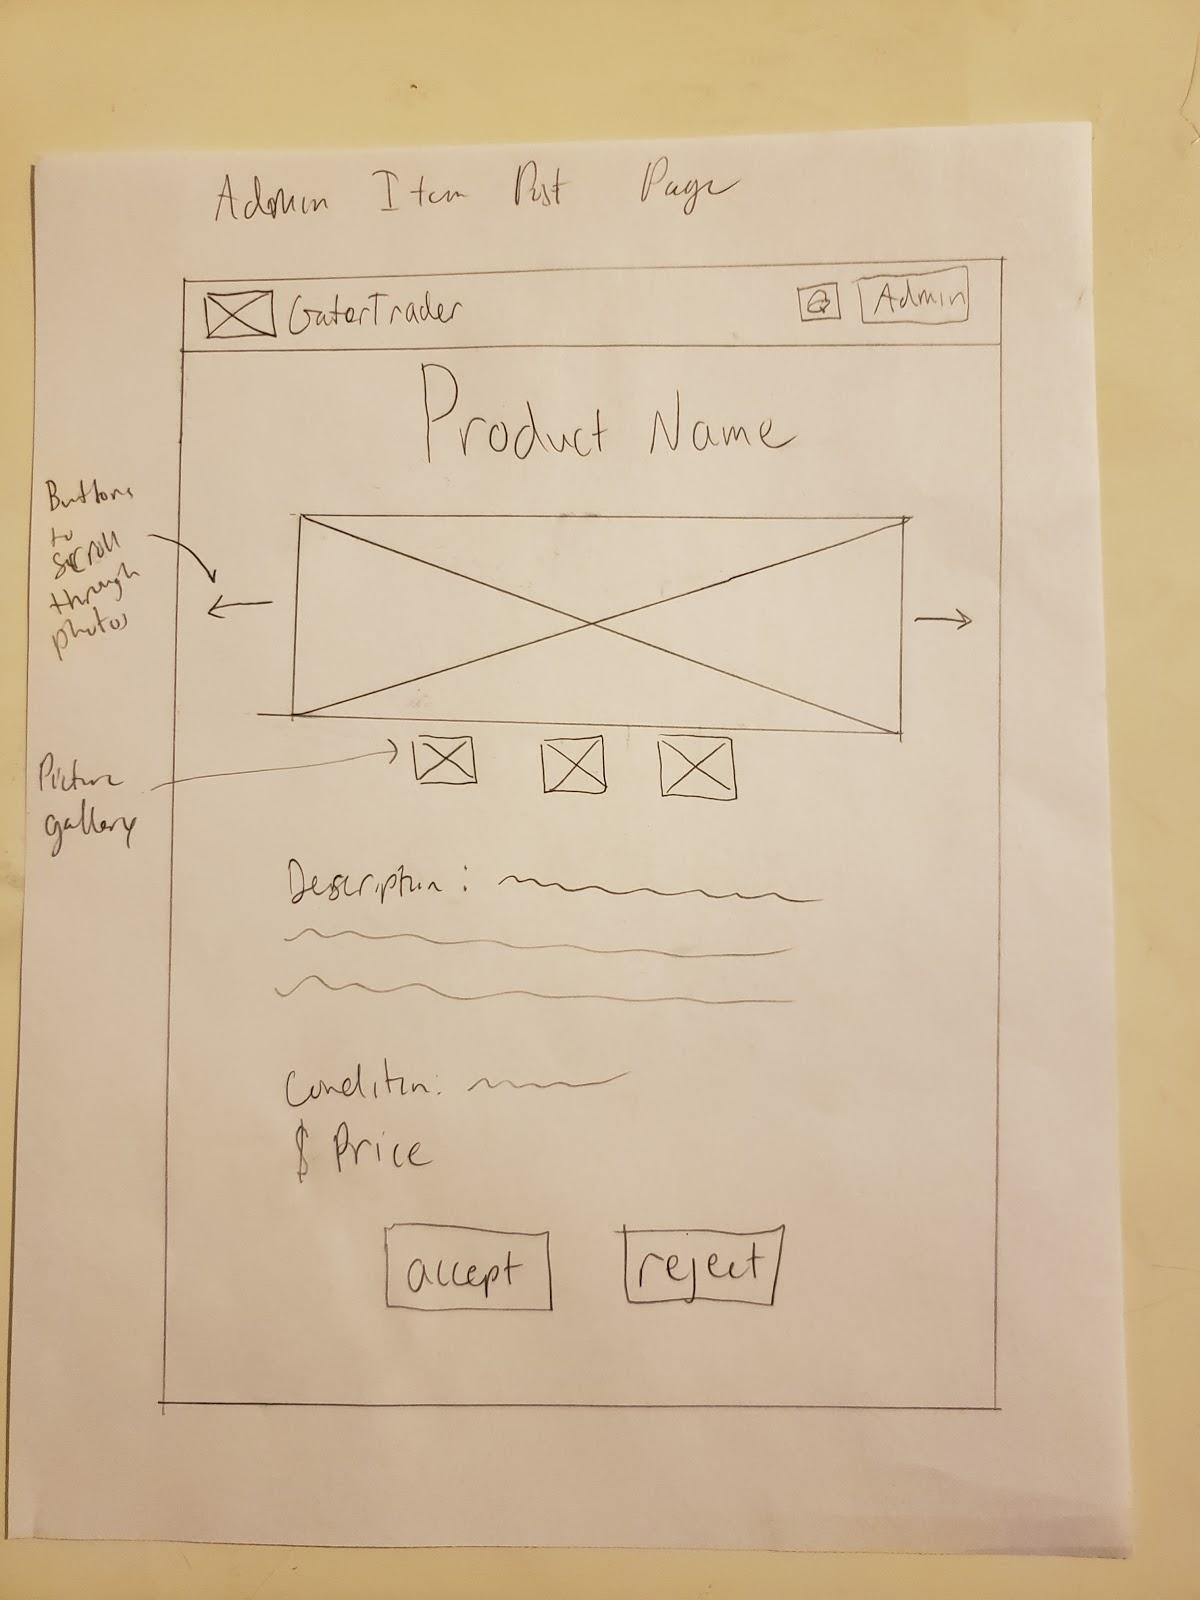 Admin Item Post Page
GatorTrader
Admin
Product Name
Buttons
to
scroll
through
photos
Picture
gallery
Description:
Condition:
$ Price
accept
reject